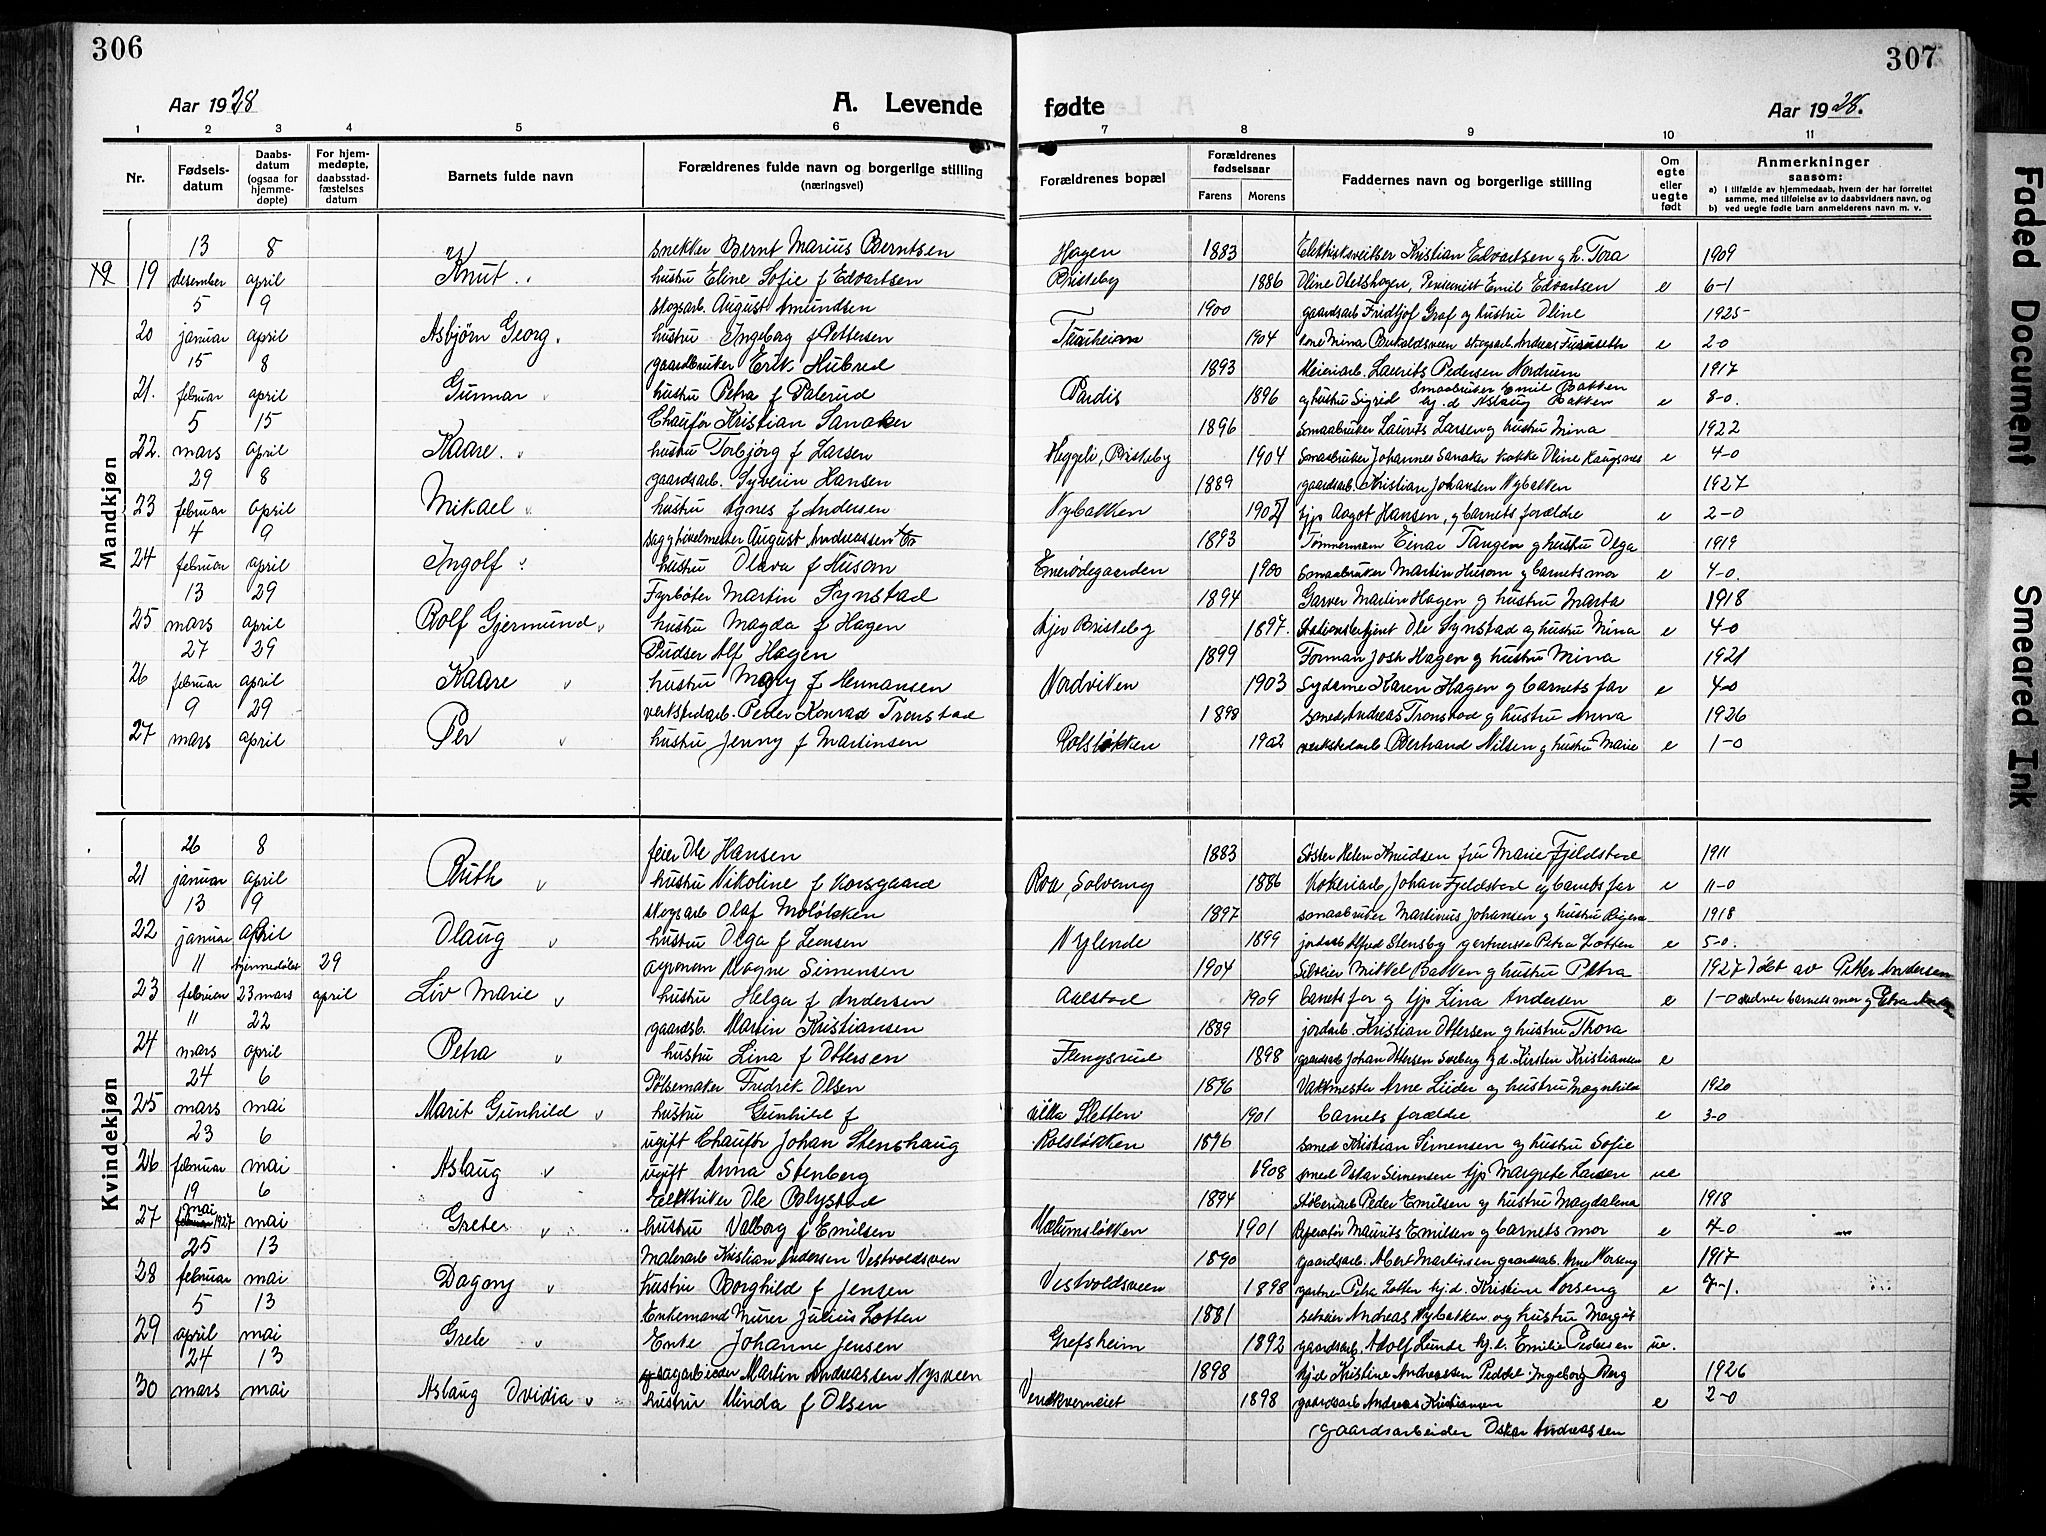 306
307
Aar 1928
A. Levende
fødte
Aar 1928.
1 2 3 4 5 6 7 8 9 10 11
Nr.
Fødsels-
datum
Daabs-
datum
(ogsaa for
hjemme-
døpte)
For hjem-
medøpte,
daabsstad-
fæstelses
datum
Barnets fulde navn
Forældrenes fulde navn og borgerlige stilling
(næringsvei)
Forældrenes bopæl
Forældrenes
fødselsaar
Farens Morens
Faddernes navn og borgerlige stilling
Om
egte
eller
uegte
født
Anmerkninger
saasom:
a) I tilfælde av hjemmedaab, hvem der har forrettet
samme, med tilføielse av to daabsvidners navn, og
b) ved uegte fødte barn anmelderens navn m. v.
Mandkjøn
13 8 snekker Bernt Marius Berntsen Hagen 1883 Kristian Edvartsen g h. Tora 1909
19 19 desember april Knut hustru Eline Sofie f Edvartsen Bristeby 1886 Oline Emil Edvartsen e 6-1
5 9 skogsarb. August Amundsen 1900 gaardsarb Fridtjof Graf og hustru Oline 1925
20 januar april Asbjørn Georg. hustru Ingeborg f Pettersen 1904 skogsarb Andreas Furuseth e 2-0
15 8 gaardbruker Erik Hubred 1893 Meieriarb. Laurits Pedersen Nordrum 1917
21. februar april Gunnar hustru Petra f Palerud Pardis 1896 og hustru Sigrid smaabruker Emil Bakken hj. d Aslaug Bakken e 8-0.
5 15 Chaufør Kristian Sanaker 1896 smaabruker Laurits Larsen g hustru Mina 1922
22. mars april Kaare. hustru Torbjørg f Larsen Heggeli, Bristeby 1904 smaabruker Johannes Sanaker kokke Oline e 4-0
29 8 gaardsarb. Syverin Hansen 1889 gaardsarb. Kristian Johansen Nybakken 1927
23 februar april Mikael hustru Agnes f Andersen Nybakken tjp Aagot Hansen, g barnets forældre e 2-0
4 9 August Andreassen 1893 Tømmermann Einar Tangen g hustru Olga 1919
24 februar april Ingolf hustru Olava f Husom Enerødegaarden 1900 smaabruker Martin Husom g barnets mor e 4-0.
13 29 Fyrbøter Martin Synstad 1894 Garver Martin Hagen g hustru Marta 1918
25 mars april Rolf Gjermund hustru Magda f Hagen Bristeby 1897. Ole Synstad og hustru Mina e 4-0
27 29 Pudser Alf Hagen 1899 Forman Hagen g hustru Mina 1921
26 februar april Kaare hustru Mary f Hermansen Nordviken 1903 Sydame Karen Hagen g barnets far e 4-0
9 29 verkstedarb. Peder Konrad Tronstad 1898 smed Andreas Tronstad g hustru Anna 1926
27 mars april Per hustru Jenny f Martinsen Rolsløkken 1902 verkstedarb Bertrand Nilsen g hustru Marie e 1-0
Kvindekjøn
26 8 feier Ole Hansen 1883 Søster Helen Knudsen fru Marie Fjeldstad 1911
21 januar april Ruth hustru Nikoline f Korsgaard Roa, Solvang 1886 Johan Fjeldstad og barnets far e 11-0
13 9 skogsarb Olaf Moløkken 1897 smaabruker Martinus Johansen g hustru 1918
22 januar april Olaug hustru Olga f Leonsen Nylende 1899 Alfred Stensby gartnerske Petra Løtten e 5-0.
11 hjemmedøbt 29 agronom Magne Simensen 1904 Mikkel Bakken g hustru Petra 1927 døbt av Petter Andersen
23 februar 23 mars april Liv Marie hustru Helga f Andersen Aalstad 1909 barnets far g tjp Lina Andersen e 1-0 barnets mor g
11 22 gaardsb. Martin Kristiansen 1889 jordarb. Kristian Ottersen g hustru Thora
24 mars april Petra hustru Lina f Ottersen Flengsrud 1898 gaardsarb Johan Ottersen hj. d. Kirsten Kristiansen e
24 6 Pølsemaker Fredrik Olsen 1896 Vaktmester Arne Lüder og hustru Magnhild 1920
25 mars mai Marit Gunhild hustru Gunhild f villa Sletten 1901 barnets forældre e 3-0
23 6 ugift Chaufør Johan Stenshaug Rolsløkken 1896 smed Kristian Simensen og hustru Sofie
26 februar mai Aslaug ugift Anna Stenberg 1908 smed Oskar Simensen tjp Margrete Larsen ue
19 6 Elektriker Ole Blystad 1894 Støberiarb Peder Emilsen og hustru Magdalena 1918
27 mai februar 1927 mai Grete hustru Valborg f Emilsen Mælumsløkken 1901 Reperatør Maurits Emilsen g barnets mor e 4-0
25 13 Malerarb Kristian Andersen Vestvoldsveen 1890 gaardsarb. Abert Martinsen gaardsarb. Arne Norseng 1917
28 februar mai Dagny hustru Borghild f Jensen Vestvoldsveen 1898 gartner Petra Løtten hj.d. Kristine Norseng e 7-1.
5 13 Enkemand Murer Julius Løtten 1881 Andreas Nybakken og hustru Margit
29 april mai Grete Enke Johanne Jensen Grefsheim 1892 gaardsarb. Adolf Lunde hj. d. Emilie Pedersen ue.
24 13 sagarbeider Martin Andreassen Nysveen 1898 hj.d Kristine Andreassen Ingeborg Berg 1926
30 mars mai Aslaug Ovidia hustru Minda f Olsen 1898 gaardsarb Andreas Kristiansen e 2-0
gaardsarbeider Oskar Andreassen
Faded Document
Smeared Ink